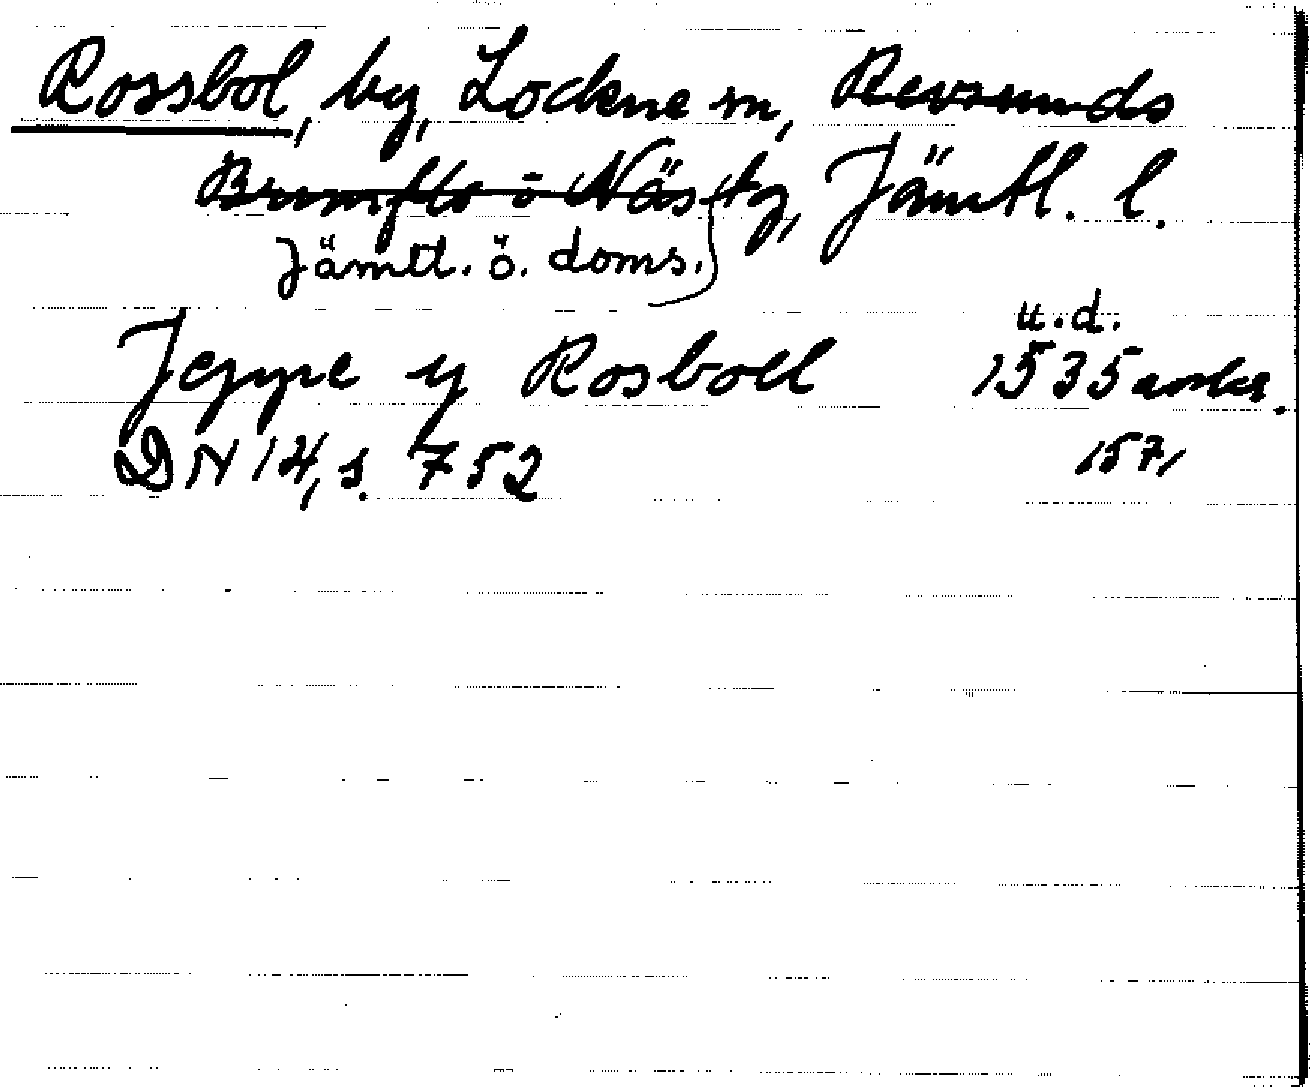 Rossbol, by, Lockne sn, Revsunds
Brunflo o Näs tg, Jämtl. l.
Jämtl. ö. doms.
Jeppe y Rosboll u.d. 1535
DN 14, s. 752 1571